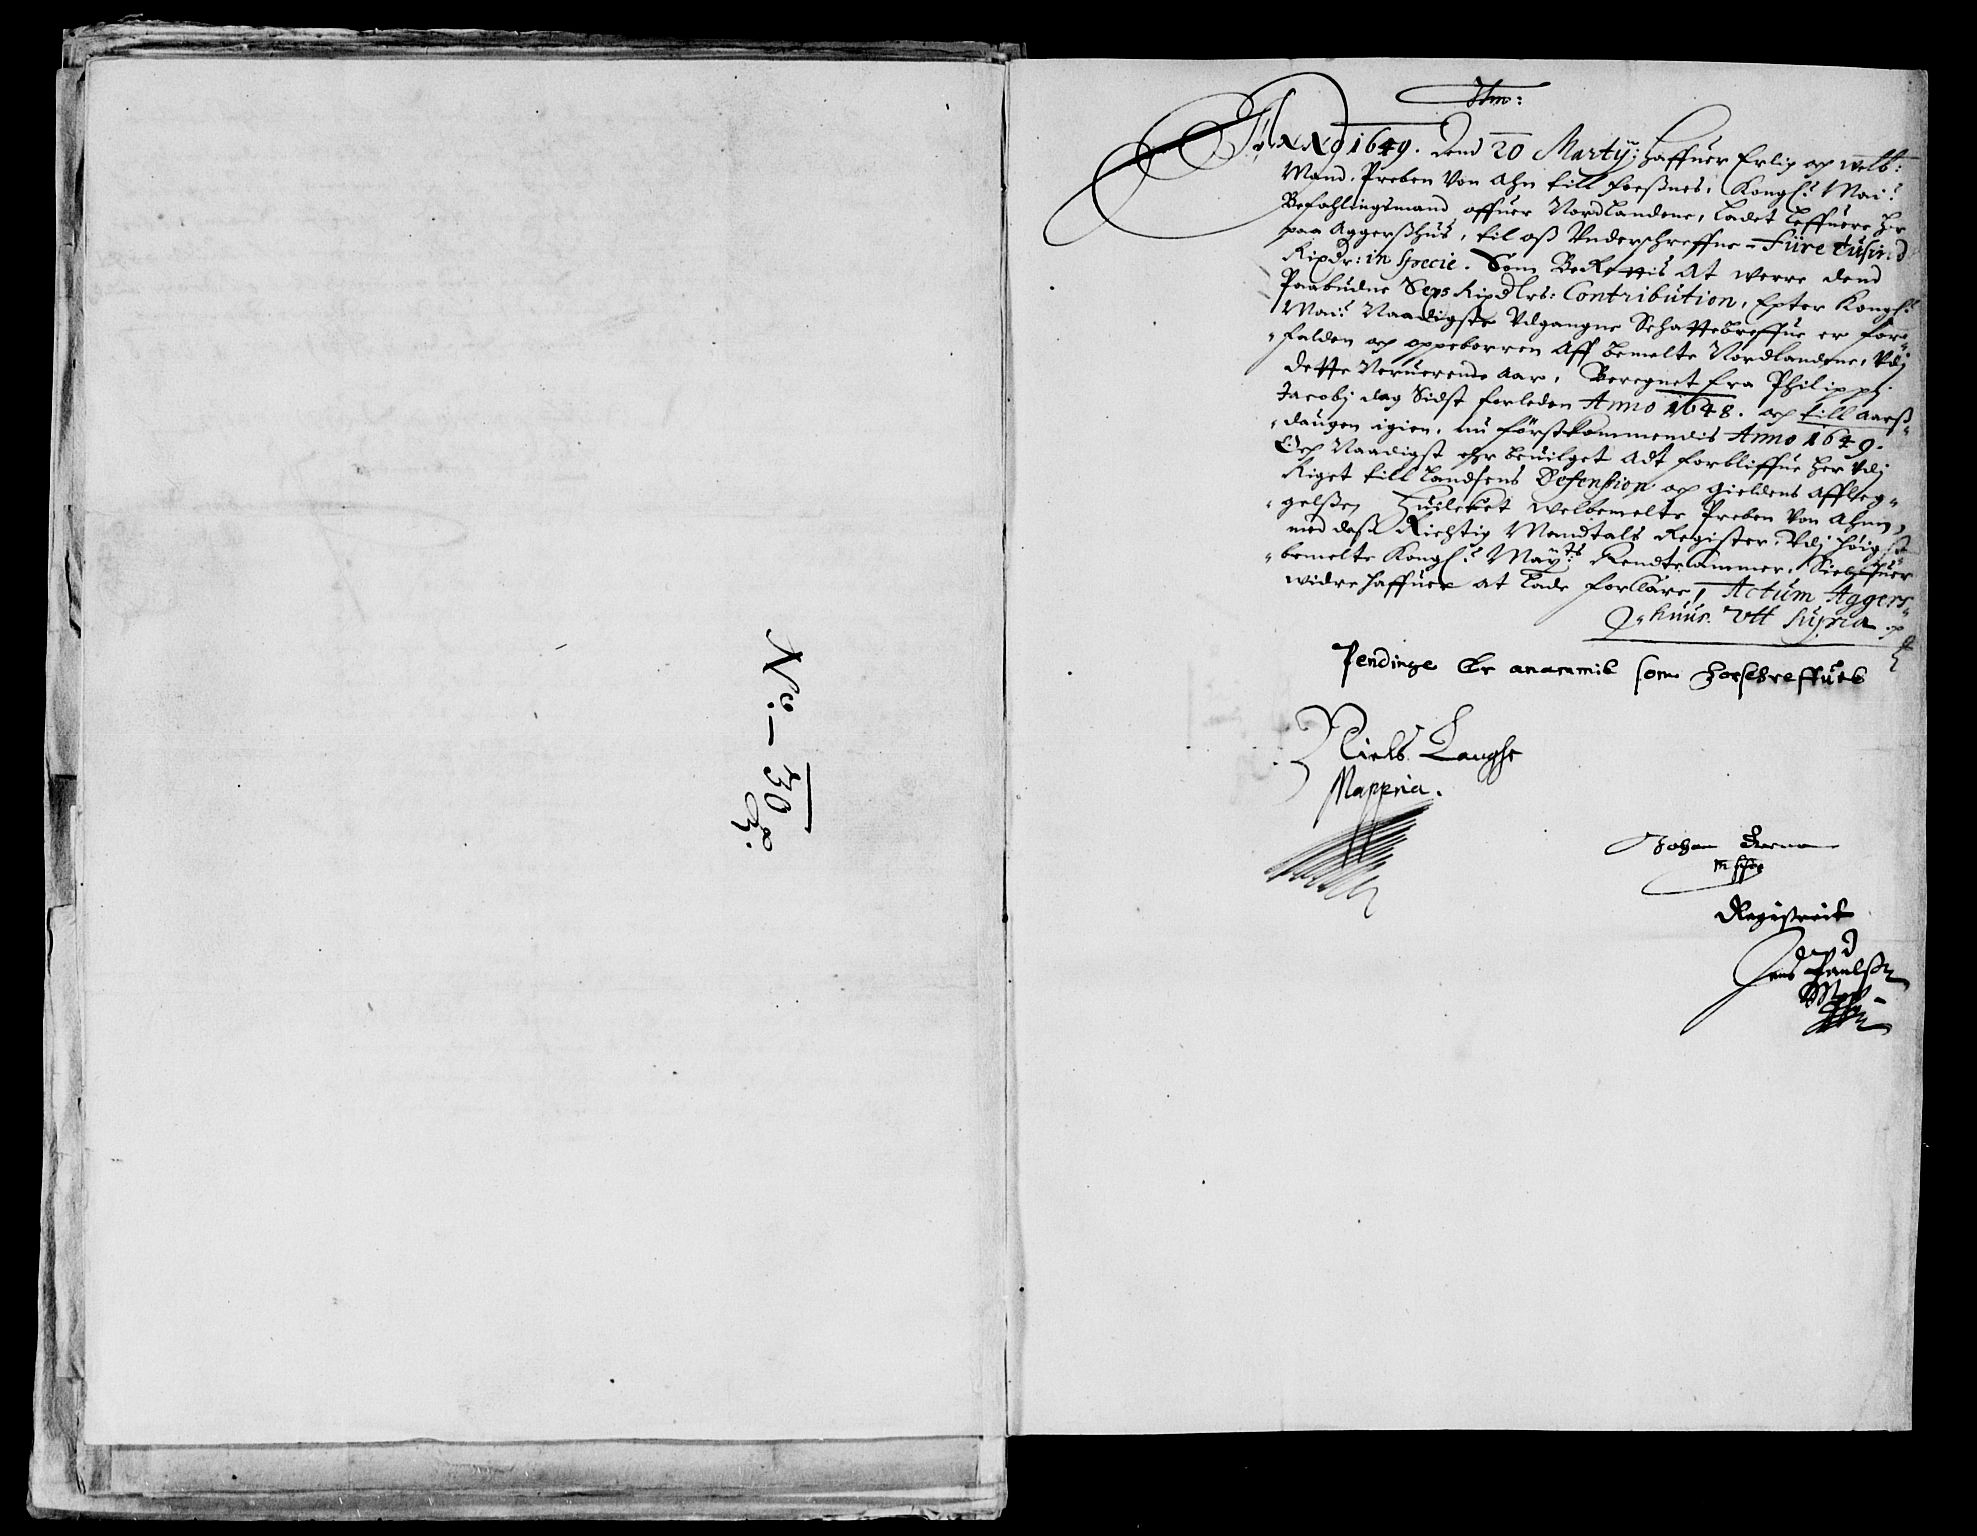 No. 30
Itm:
ANNO 1649. Dend 20 Martij: haffuer Erlig och welb:
Mand. Preben Von Ahn till Foeßnes, Kongl: Mai:
Befahlingsmand offuer Nordlandene, ladet leffuere her
paa Aggerßhus, til oß Underschreffne Fiire tusind
Rixdr: in specie. Som at werre dend
Paabudne Sex Rixdlrs: Contribution, Epter Kongl:
Mai: Naadigste Udgangne Schattebreffue er for
falden och oppeborren Aff bemelte Nordlandene, Udj
dette Neruerende Aar, Beregnet fra Philippi
Jacobj dag Sidst forleden Anno 1648. och till aarß
daugen igien, nu förstkommendis Anno 1649.
Och Naadigst ehr beuilget Adt forbliffue her Udj
Riget till Landsens Defension och gieldens affleg
gelßen, Huilcket welbemelte Preben Von Ahnn,
med deß Richtig Mandtals Register, Udj höig
bemelte Kongl: Maytts: Rendtekammer, Sielffuer
widre haffuer at lade forclare, Actum Aggers
huus. Utt supra
Pendinge Er anammit som forschreffuet
Niels Langhe
Mappria.
Johan
Registreit
aff
Jens Paulßn